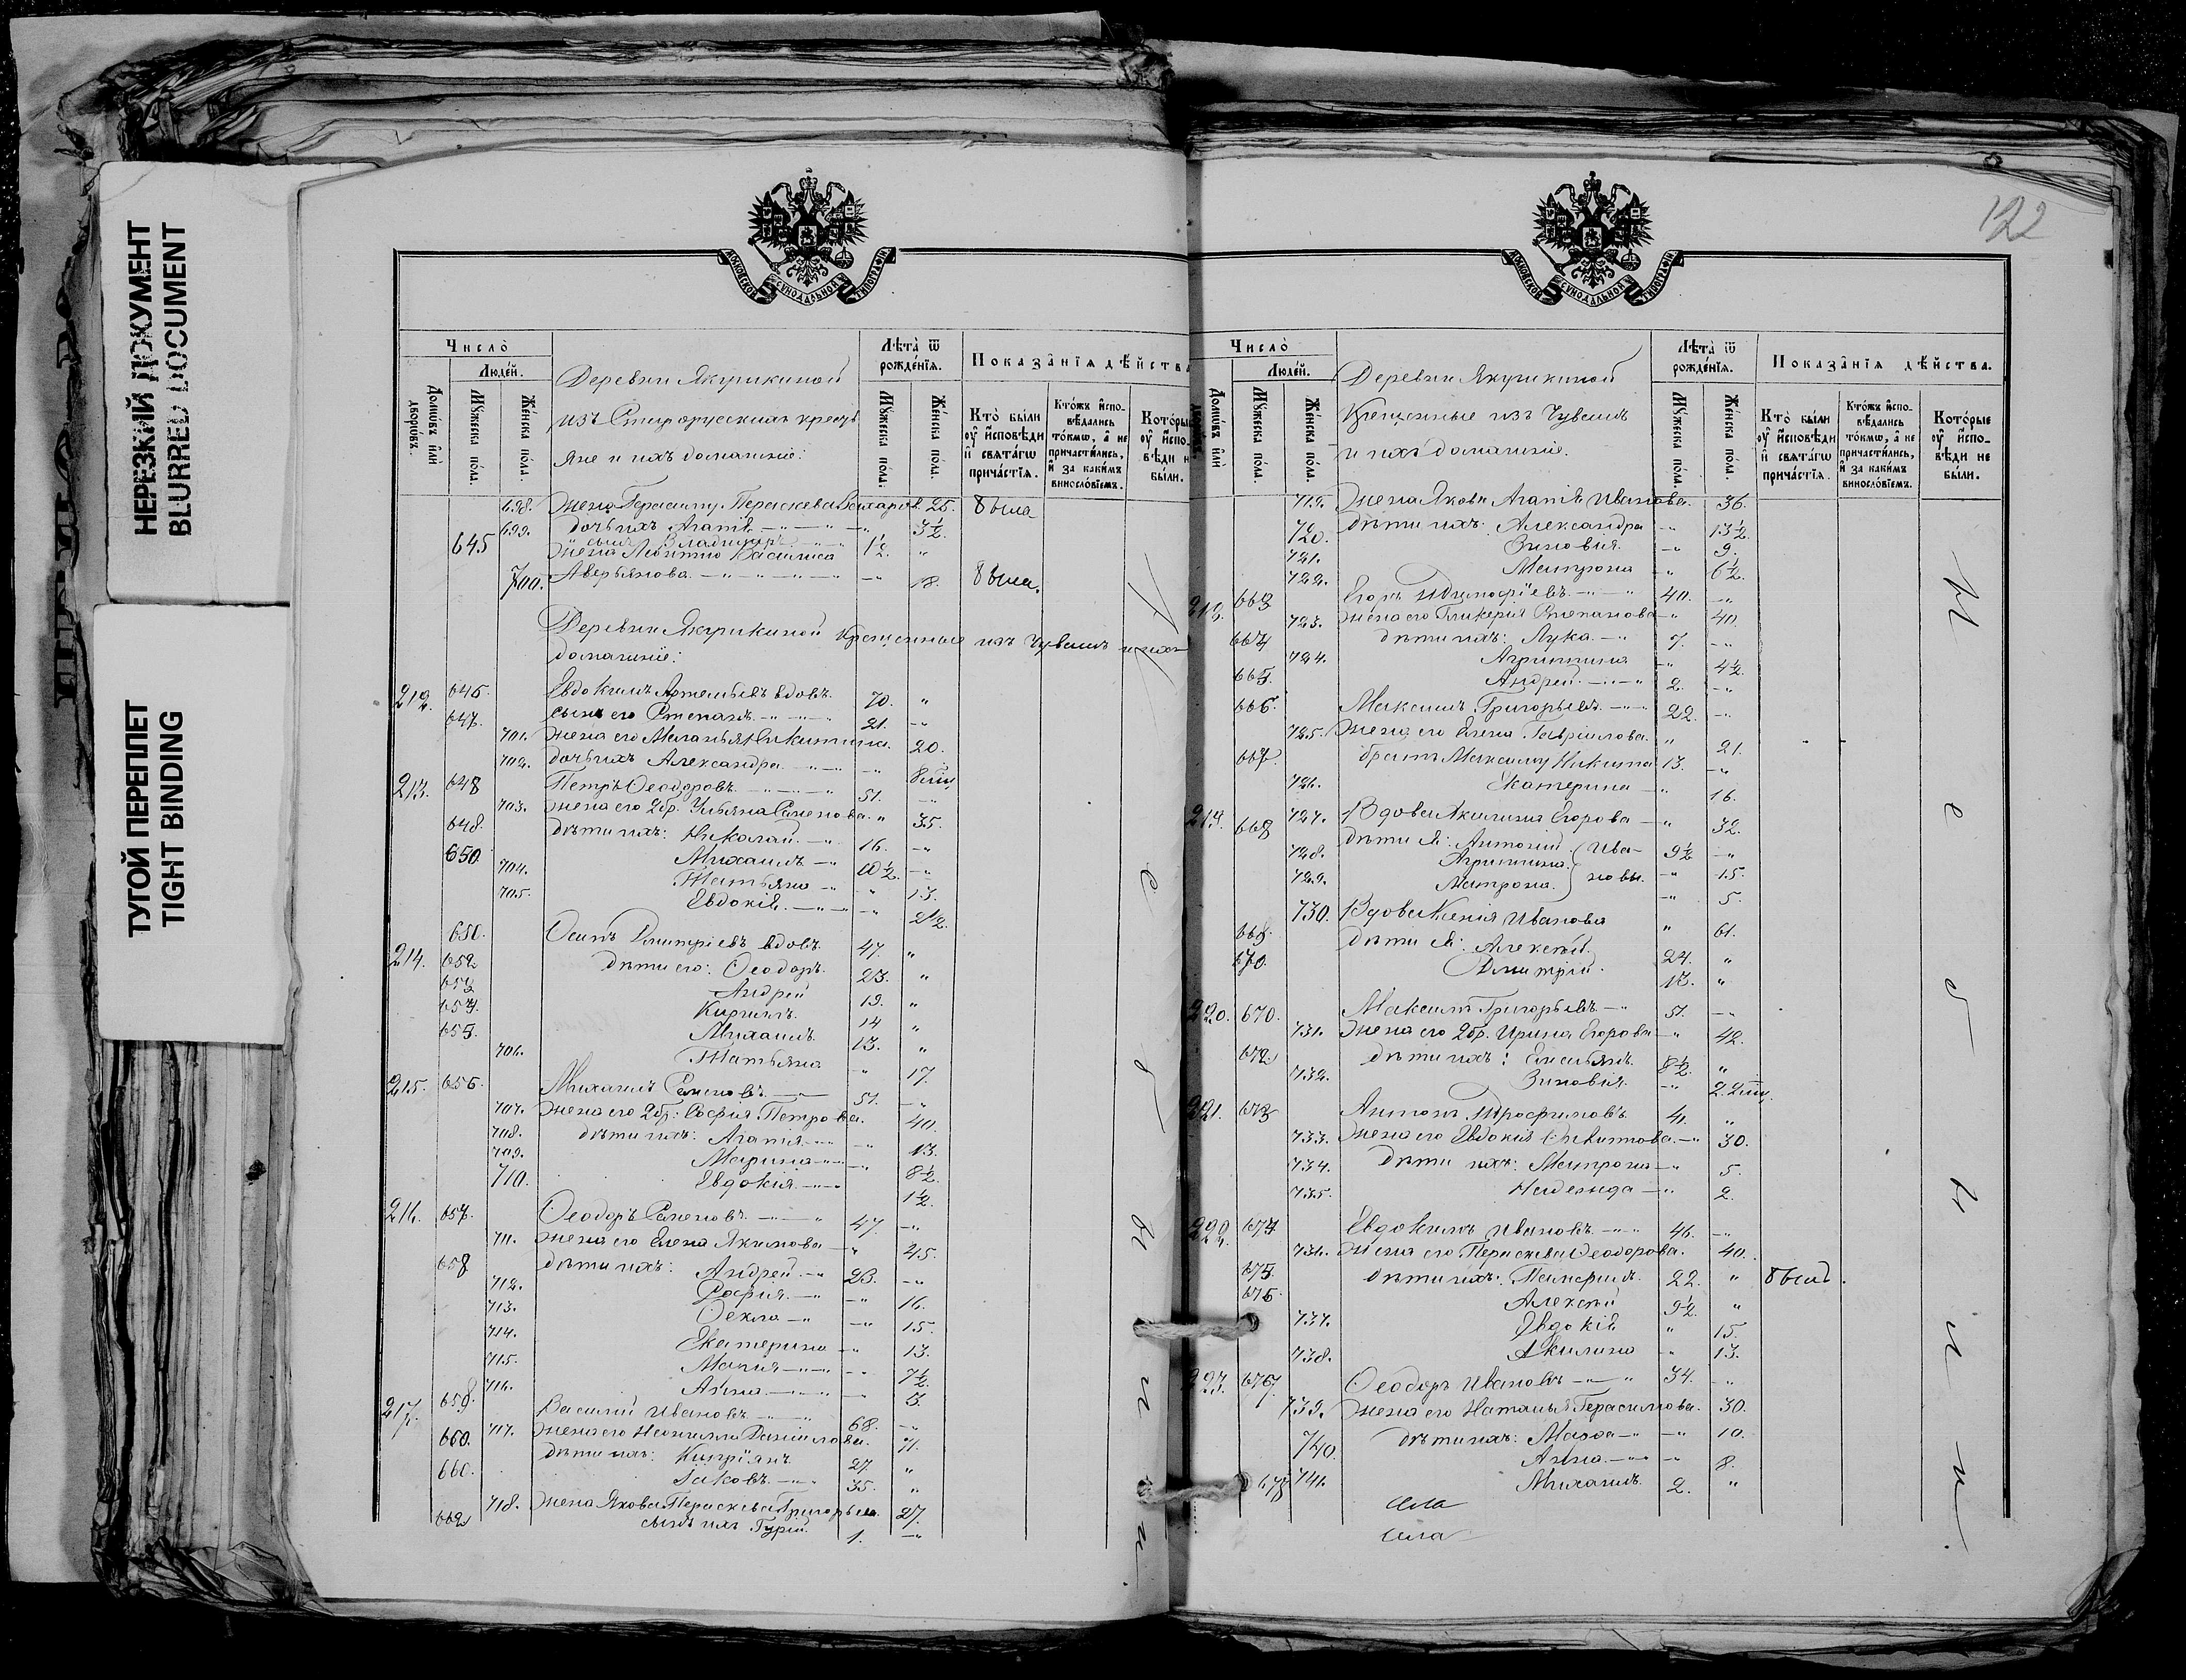 НЕРЕЗКИЙ ДОКУМЕНТ
BLURRED DOCUMENT
ТУГОЙ ПЕРЕПЛЕТ
TIGHT BINDING
МОСКОВСКОЙ СѴНОДАЛЬНОЙ ТИПОГРАФІИ
Число̀
Людéй.
Домѡ́въ и҆лѝ дворѡ́въ.
Мꙋ́жеска по́ла.
Же́нска по́ла.
Деревни Якушкиной
изъ крестья
яне и ихъ домашніе:
Лѣта̀ ѿ рожде́нїѧ.
Мꙋ́жеска по́ла.
Же́нска по́ла.
Показа̑нїѧ дѣ́йства
Кто̀ бы́ли ᲂу҆ и҆сповѣ́ди и҆ свѧта́гѡ прича́стїѧ.
Кто́жъ и҆сповѣ́дались то́кмѡ, а҆ не причасти́лись, и҆ за каки́мъ винослові́емъ.
Кото́рые ᲂу҆ и҆спо-вѣ́ди н бы́ли.
698. Жена Герасиму Параскева 25. была
699. дочь ихъ Агапія 3½.
645 сынъ Владиміръ 1½. "
Жена Василиса
700. Аверьянова 18. была.
Деревни Якушкиной Крещенные изъ Чувашъ и ихъ
домашніе:
212. 646. Евдокимъ Артемьевъ вдовъ. 70. "
647. сынъ его Степанъ 21.
701. Жена его Маланья Никитина. 20.
702. дочь ихъ Александра 8 мц.
213. 648 Петръ Ѳеодоровъ 51.
703. Жена его 2 бр. Ульяна Семенова. " 35.
648. дѣти ихъ: Николай 16.
650. Михаилъ 10½.
704. Татьяна " 13.
705. Евдокія 2½.
650. Осипъ Дмитріевъ вдовъ. 47. "
214. 652 дѣти его: Ѳеодоръ. 23. "
653 Андрей 19. "
654. Кириллъ. 14 "
655. Михаилъ. 13. "
706. Татьяна " 17.
215. 656. Михаилъ Семеновъ 51.
707. Жена его 2 бр: Софія Петрова. 40.
708. дѣти ихъ: Агапія 13.
709. Марина 8½.
710. Евдокія 1½.
216. 657. Ѳеодоръ Семеновъ 47.
711. Жена его Елена Якимова " 45.
658 дѣти ихъ: Андрей 23.
712. Софія 16.
713. Ѳекла 15.
714. Екатерина 13.
715. Марія 7½.
716. Анна 3.
217. 659. Василій Ивановъ 68.
717. Жена его Данилова. 71.
660. дѣти ихъ: Кипріянъ 27. "
660. Іаковъ 35. "
718. Жена Якова Параскева Григорьева. 27.
662 сынъ ихъ Гурій. 1.
не были
122
МОСКОВСКОЙ СѴНОДАЛЬНОЙ ТИПОГРАФІИ
Число̀
Людéй.
Домѡ́въ и҆лѝ
Мꙋ́жеска по́ла.
Же́нска по́ла.
Деревни Якушкиной
Крещенные изъ Чувашъ
и ихъ домашніе.
Лѣта̀ ѿ рожде́нїѧ.
Мꙋ́жеска по́ла.
Же́нска по́ла.
Показа̑нїѧ дѣ́йства.
Кто̀ бы́ли ᲂу҆ и҆сповѣ́ди и҆ свѧта́гѡ прича́стїѧ.
Кто́жъ и҆сповѣ́дались то́кмѡ, а҆ не причасти́лись, и҆ за каки́мъ винослові́емъ.
Кото́рые ᲂу҆ и҆спо-вѣ́ди не бы́ли.
719. Жена Якова Агапія Иванова. 36.
720. дѣти ихъ: Александра " 13½.
721. Зиновія. " 9.
722. Матрона " 6½.
218. 663 Егоръ 40.
723. Жена его Гликерія Степанова " 40
664 дѣти ихъ: Лука 7.
724. Агриппина 4½.
665. Андрей 2.
666. Максимъ Григорьевъ 22.
725. Жена его Елена Гавриилова. " 21.
667. братъ Максиму Никита 13.
726. Екатерина " 16.
219. 727. Вдова Акилина Егорова " 32.
668 дѣти ея: Антоній 9½
728. Агриппина Ива- 15.
729. Матрона новы. 5.
730. Вдова Ксенія Иванова " 61.
669. дѣти ея: Алексѣй. 24. "
670. Дмитрій. 13. "
220. 670. Максимъ Григорьевъ 51.
731. Жена его 2 бр. Ирина Егорова 42.
672 дѣти ихъ: Емельянъ. 8½. "
732. Зиновія. 2. 2 мц.
221. 673 Антонъ Трофимовъ 41. "
733. Жена его Евдокія 30.
734. дѣти ихъ: Матрона 5.
735. Надежда 2.
222. 674 Евдокимъ Ивановъ 46.
736. Жена его Параскева Ѳеодорова. 40.
675. дѣти ихъ: Памфилъ. 22. " былъ.
676. Алексѣй 9½. "
737. Евдокія " 15.
738. Акилина " 13.
223. 677. Ѳеодоръ Ивановъ 34.
739. Жена его Наталья Герасимова. 30.
740. дѣти ихъ: Марѳа 10.
741. Анна 8.
678 Михаилъ. 2. "
не были.